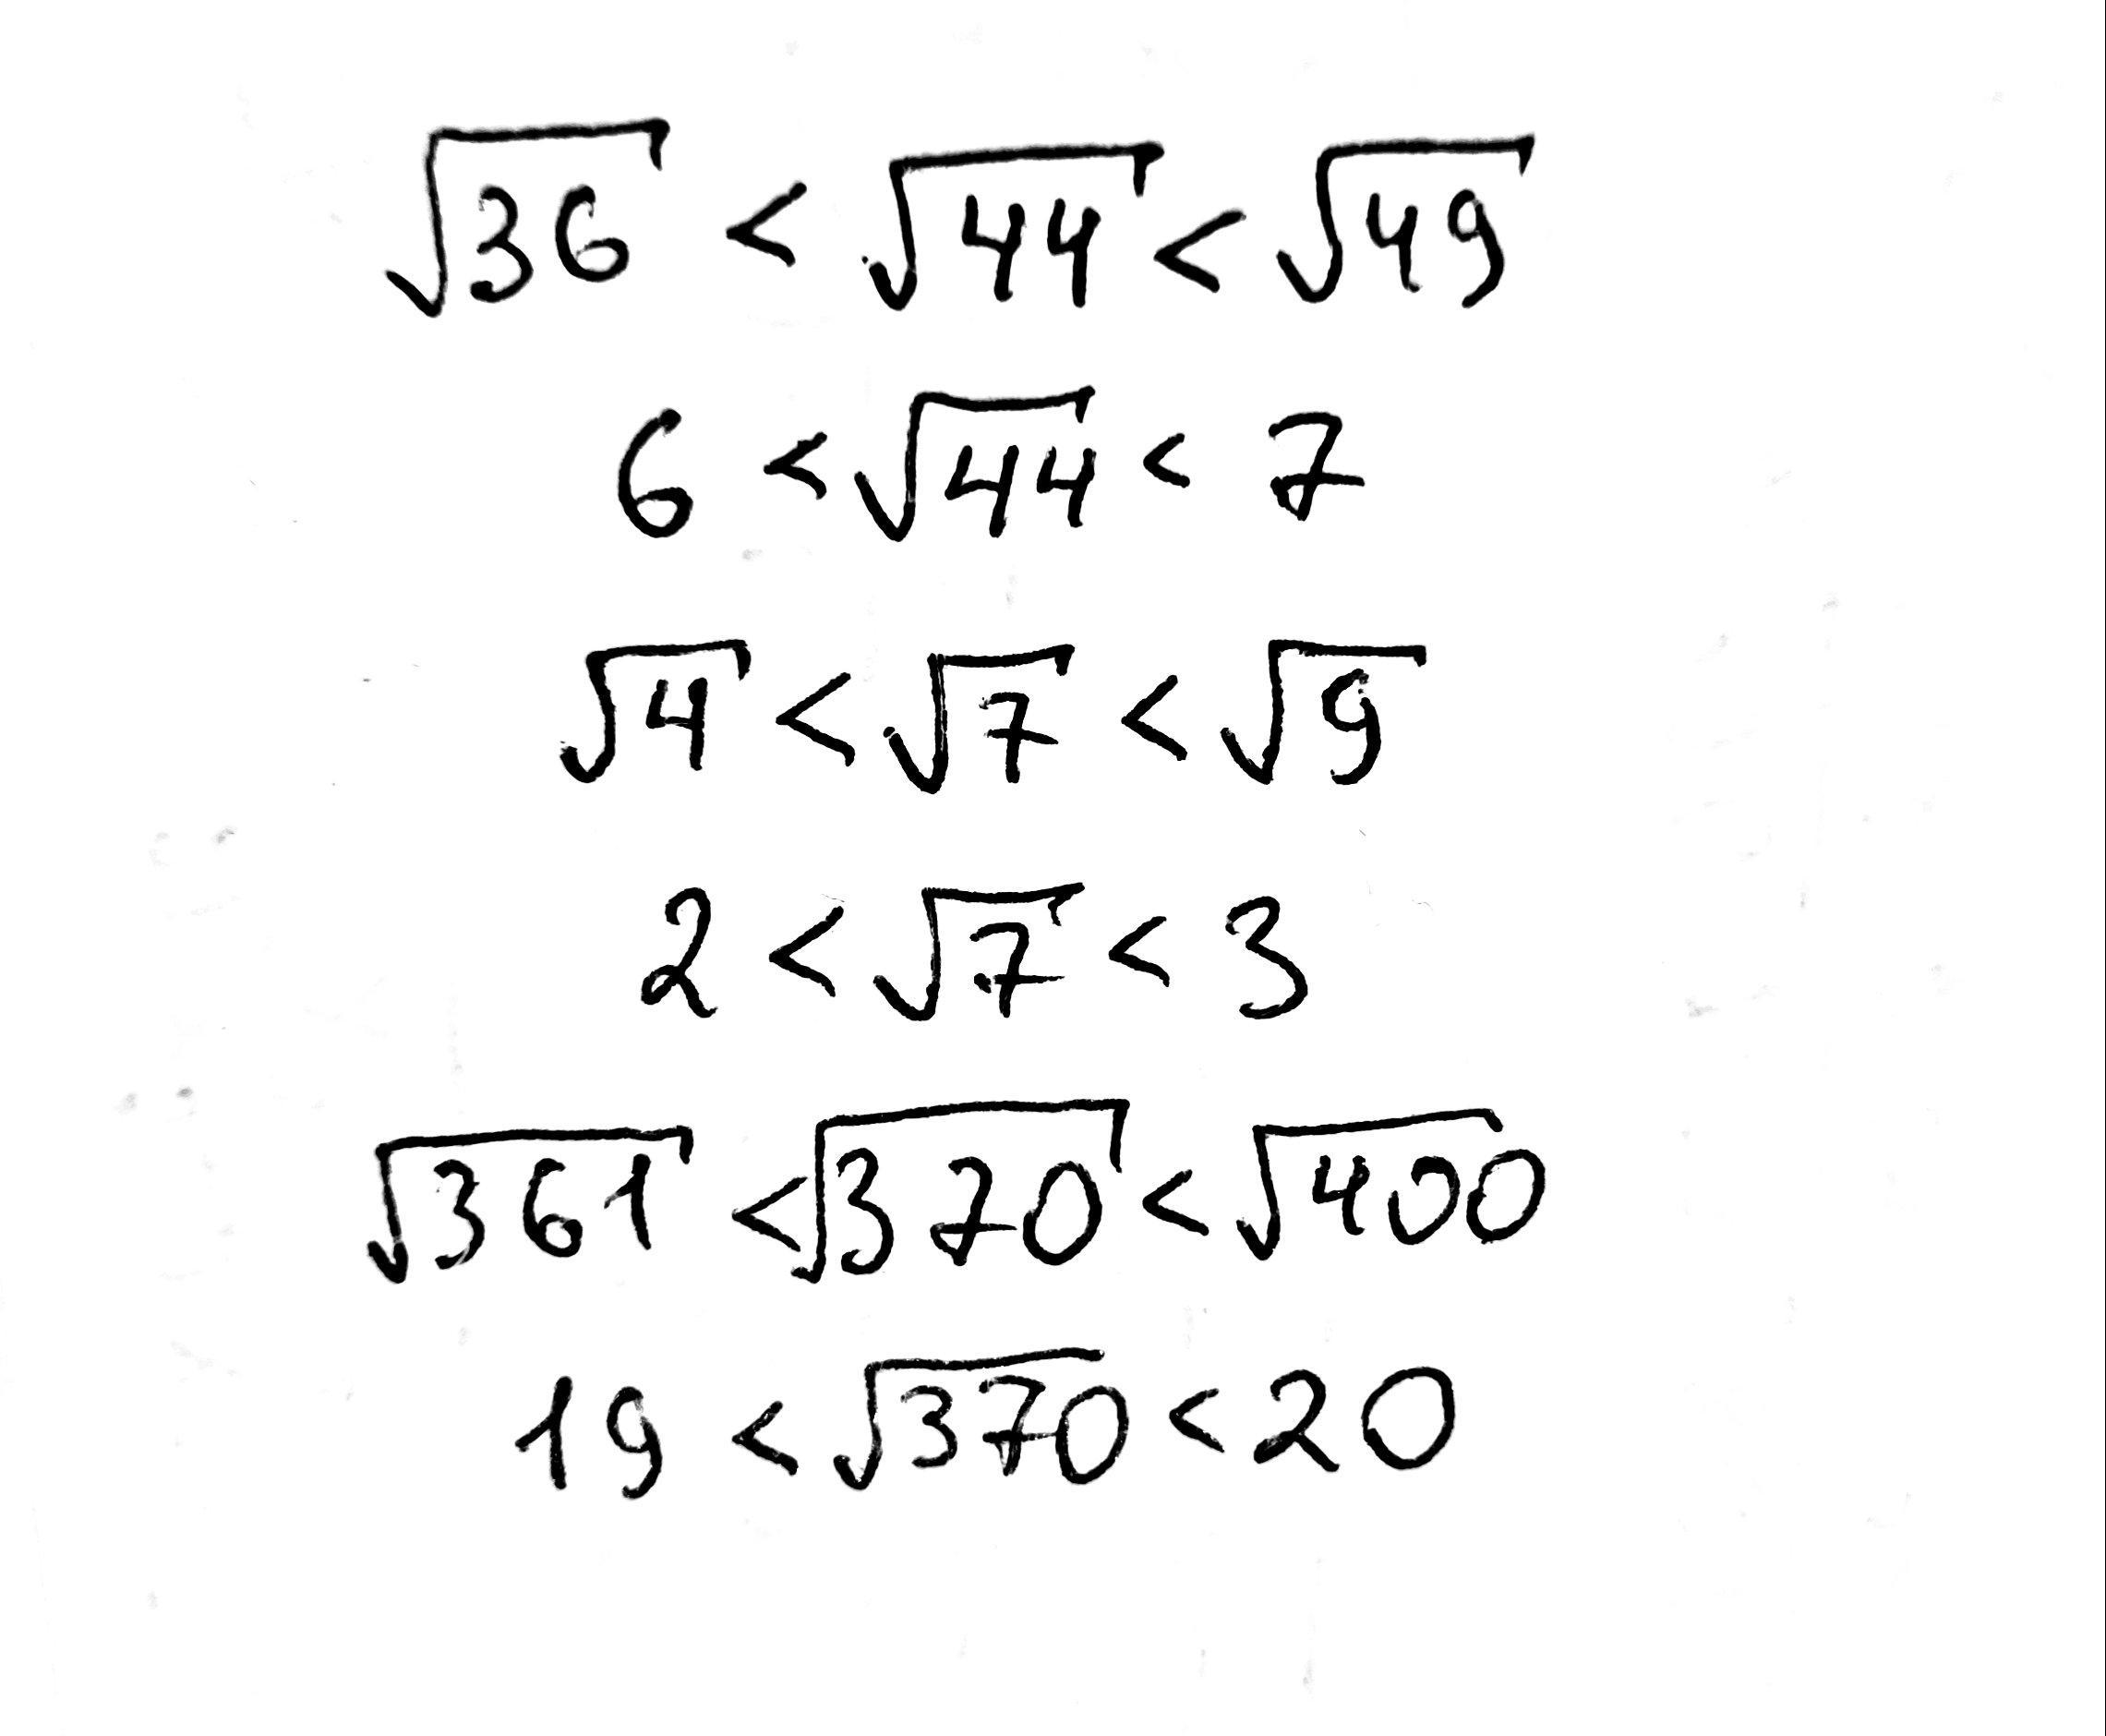 √36 < √44 < √49
6 < √44 < 7
√4 < √7 < √9
2 < √7 < 3
√361 < √370 < √400
19 < √370 < 20